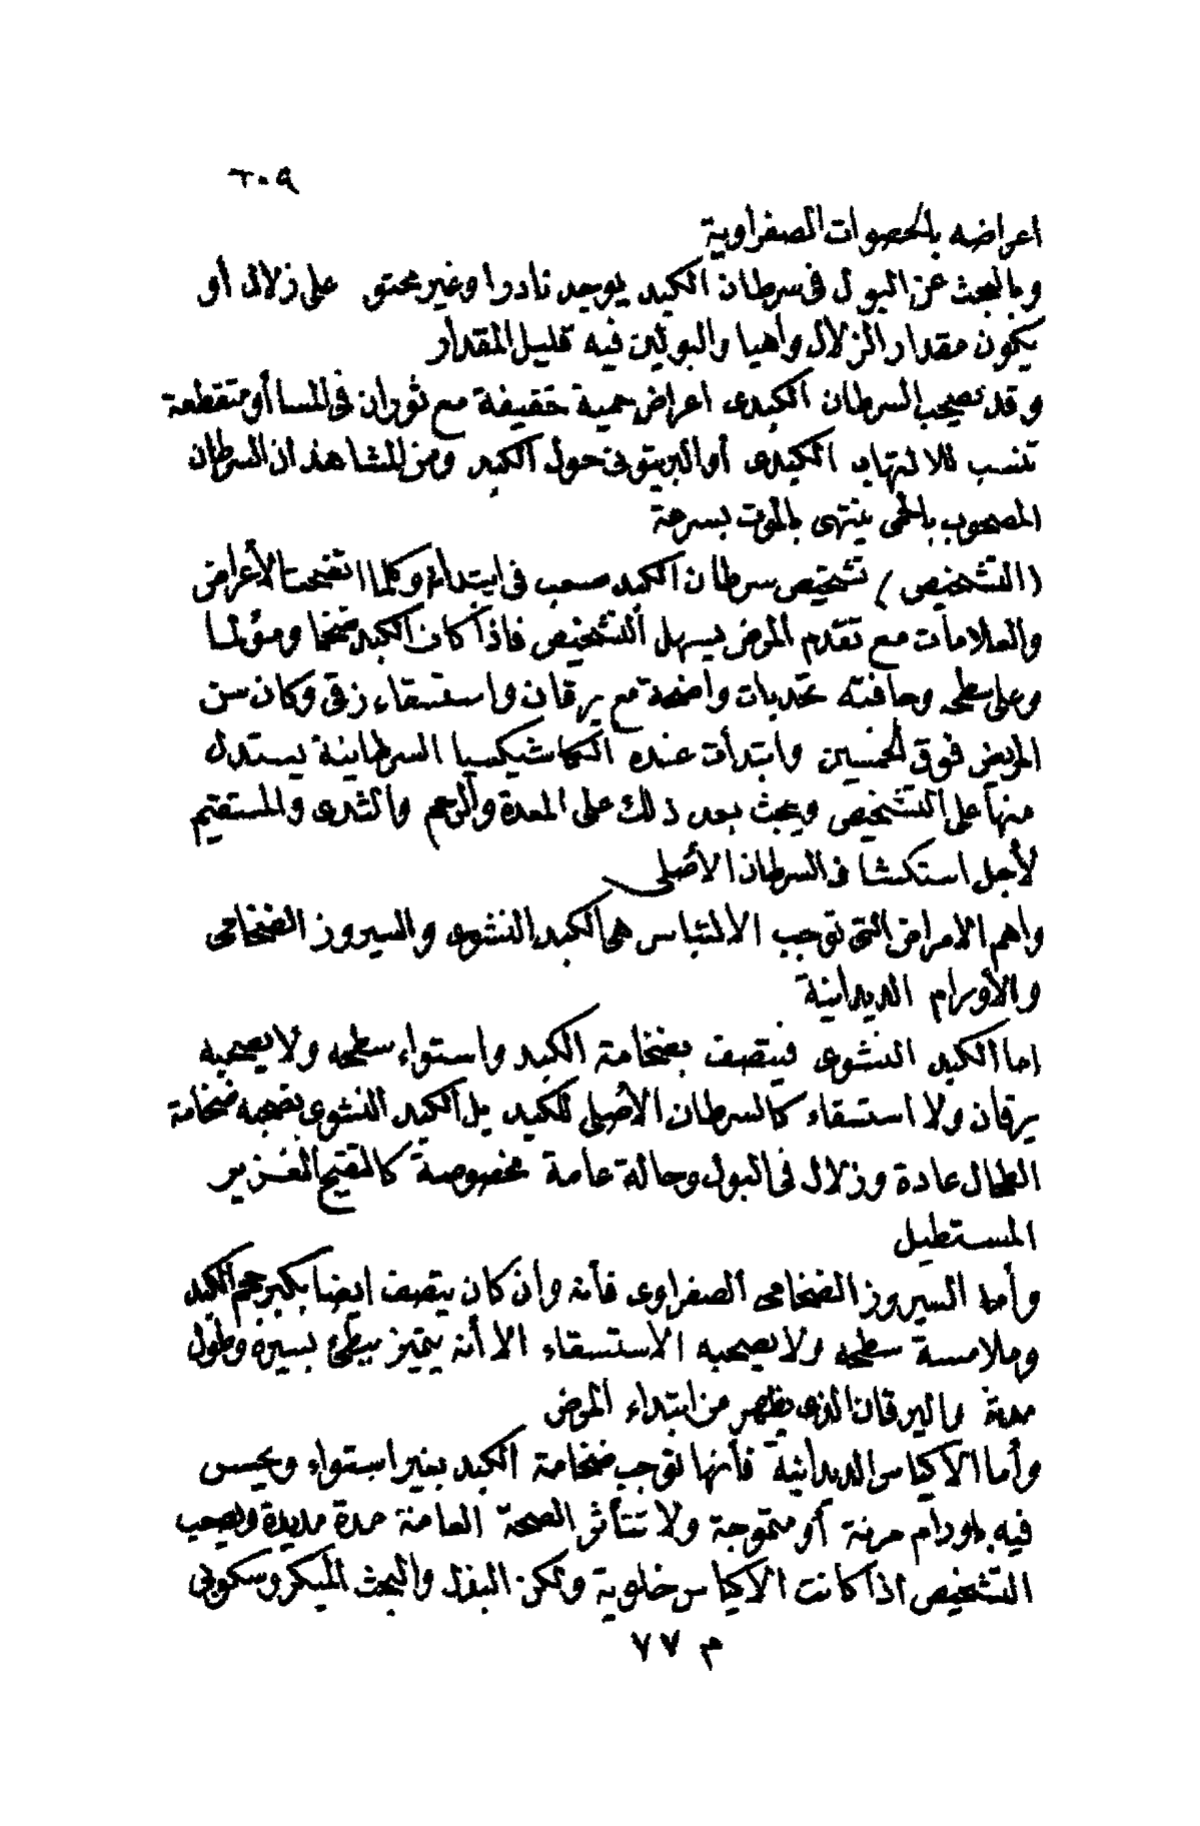 ٦٠٩
اعراضه بالحصوات الصفراوية
وبالبحث عن البول فى سرطان الكبد يوجد نادرا وغير محتو على زلال أو
يكون مقدار الزلال واهيا والبولين فيه قليل المقدار
وقد تصحب السرطان الكبدى اعراض حمية خفيفة مع ثوران فى المسا أو متقطعة
تنسب للالتهاب الكبدى أو البريتونى حول الكبد ومن المشاهد ان السرطان
المصحوب بالحمى ينتهى بالموت بسرعة
(التشخيص) تشخيص سرطان الكبد صعب فى ابتدائه وكلما اتضحت الأعراض
والعلامات مع تقدم المرض يسهل التشخيص فاذا كان الكبد ضخما ومؤلما
وعلى سطحه وحافته تحدبات واضحة مع يرقان واستسقاء زقى وكان سن
المريض فوق الخمسين وابتدأت عنده الكاشيكسيا السرطانية يستدل
منها على التشخيص ويبحث بعد ذلك على المعدة والرحم والثدى والمستقيم
لأجل استكشاف السرطان الأصلى
واهم الامراض التى توجب الالتباس هى الكبد النشوى والسيروز الضخامى
والأورام الديدانية
اما الكبد النشوى فيتصف بضخامة الكبد واستواء سطحه ولا يصحبه
يرقان ولا استسقاء كالسرطان الأصلى للكبد بل الكبد النشوى يصحبه ضخامة
الطحال عادة وزلال فى البول وحالة عامة مخصوصة كالتقيح الغزير
المستطيل
وأما السيروز الضخامى الصفراوى فأنه وان كان يتصف ايضا بكبر حجم الكبد
وملامسة سطحه ولا يصحبه الاستسقاء الا أنه يتميز ببطئ بسيره وطول
مدته وباليرقان الذى يظهر من ابتداء المرض
وأما الاكياس الديدانية فأنها توجب ضخامة الكبد بغير استواء ويحس
فيه باورام مرنة أو متموجة ولا تتأثر الصحة العامة مدة مديدة ويصعب
التشخيص اذا كانت الاكياس خلوية ولكن البذل والبحث الميكروسكوبى
م ٧٧